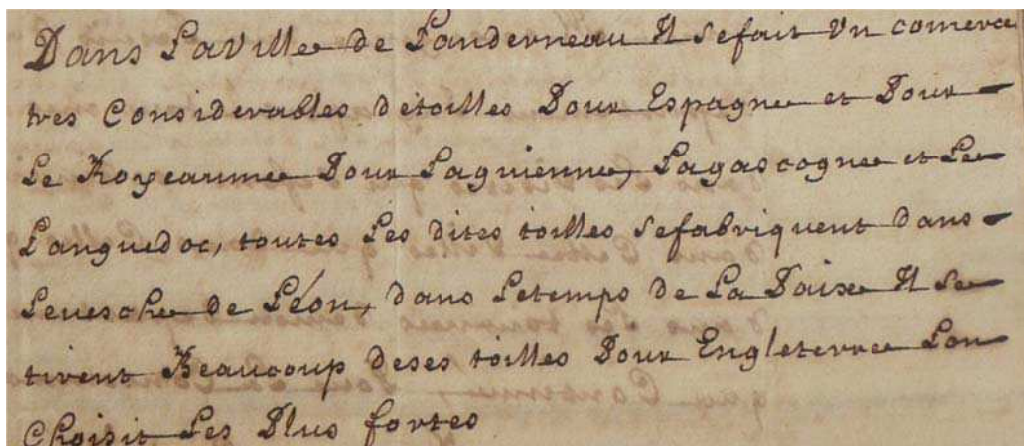 Dans Laville de Landerneau Il sefait Un comerce
tres Considerables detoilles Pour Espagne et Pour
Le Royeaume Pour Laguienne, Lagascogne et Le
Languedoc, toutes Les dites toilles sefabriquent dans
Leuesche de Léon, dans Letemps de La Paix Il Se
tirent Beaucoup deses toilles Pour Engleterre Lon
Choisit Les Plus fortes